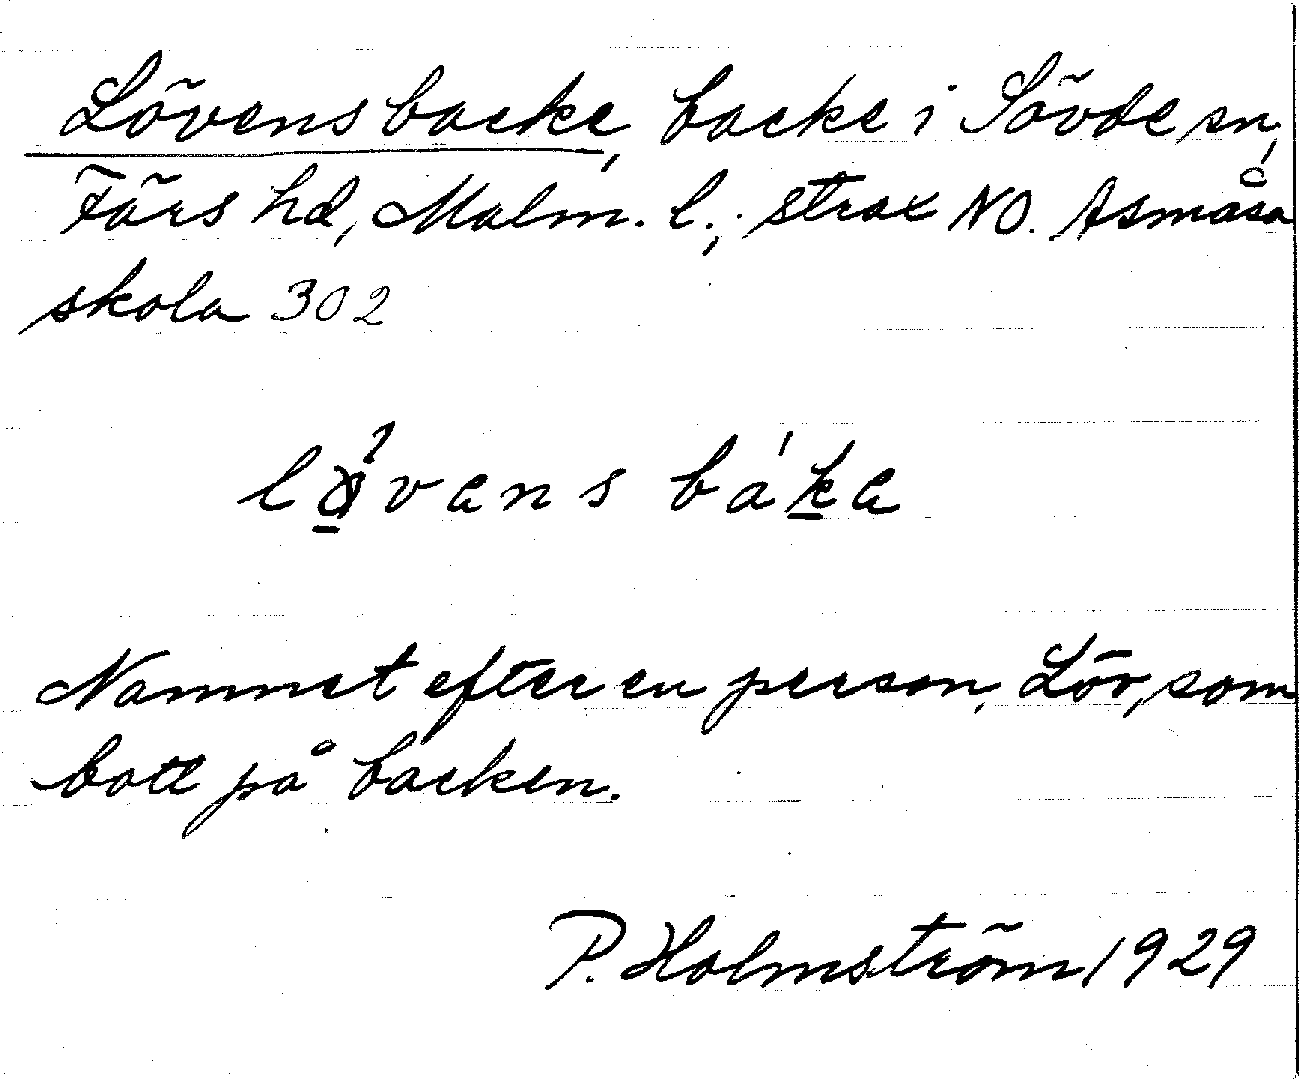 Lövens backe, backe i Sövde sn,
Färs hd, Malm. l., strax NO. Åsmåsa
skola 302
løvens báke
Namnet efter en person, Löv, som
bott på backen.
P. Holmström 1929